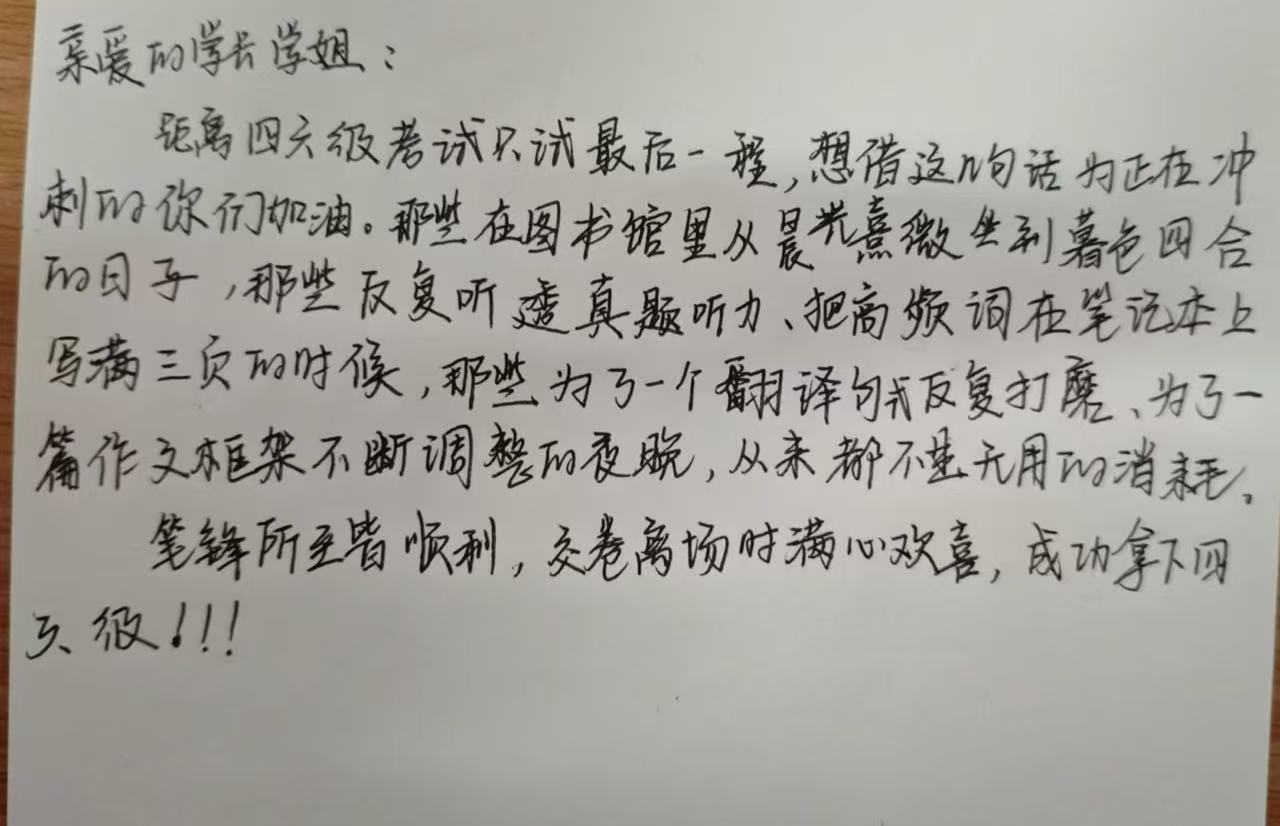 亲爱的学长学姐：
距离四六级考试只试最后一程，想借这几句话为正在冲
刺的你们加油。那些在图书馆里从晨光熹微坐到暮色四合
的日子，那些反复听透真题听力、把高频词在笔记本上
写满三页的时候，那些为了一个翻译句式反复打磨、为了一
篇作文框架不断调整的夜晚，从来都不是无用的消耗。
笔锋所至皆顺利，交卷离场时满心欢喜，成功拿下四
六级！！！